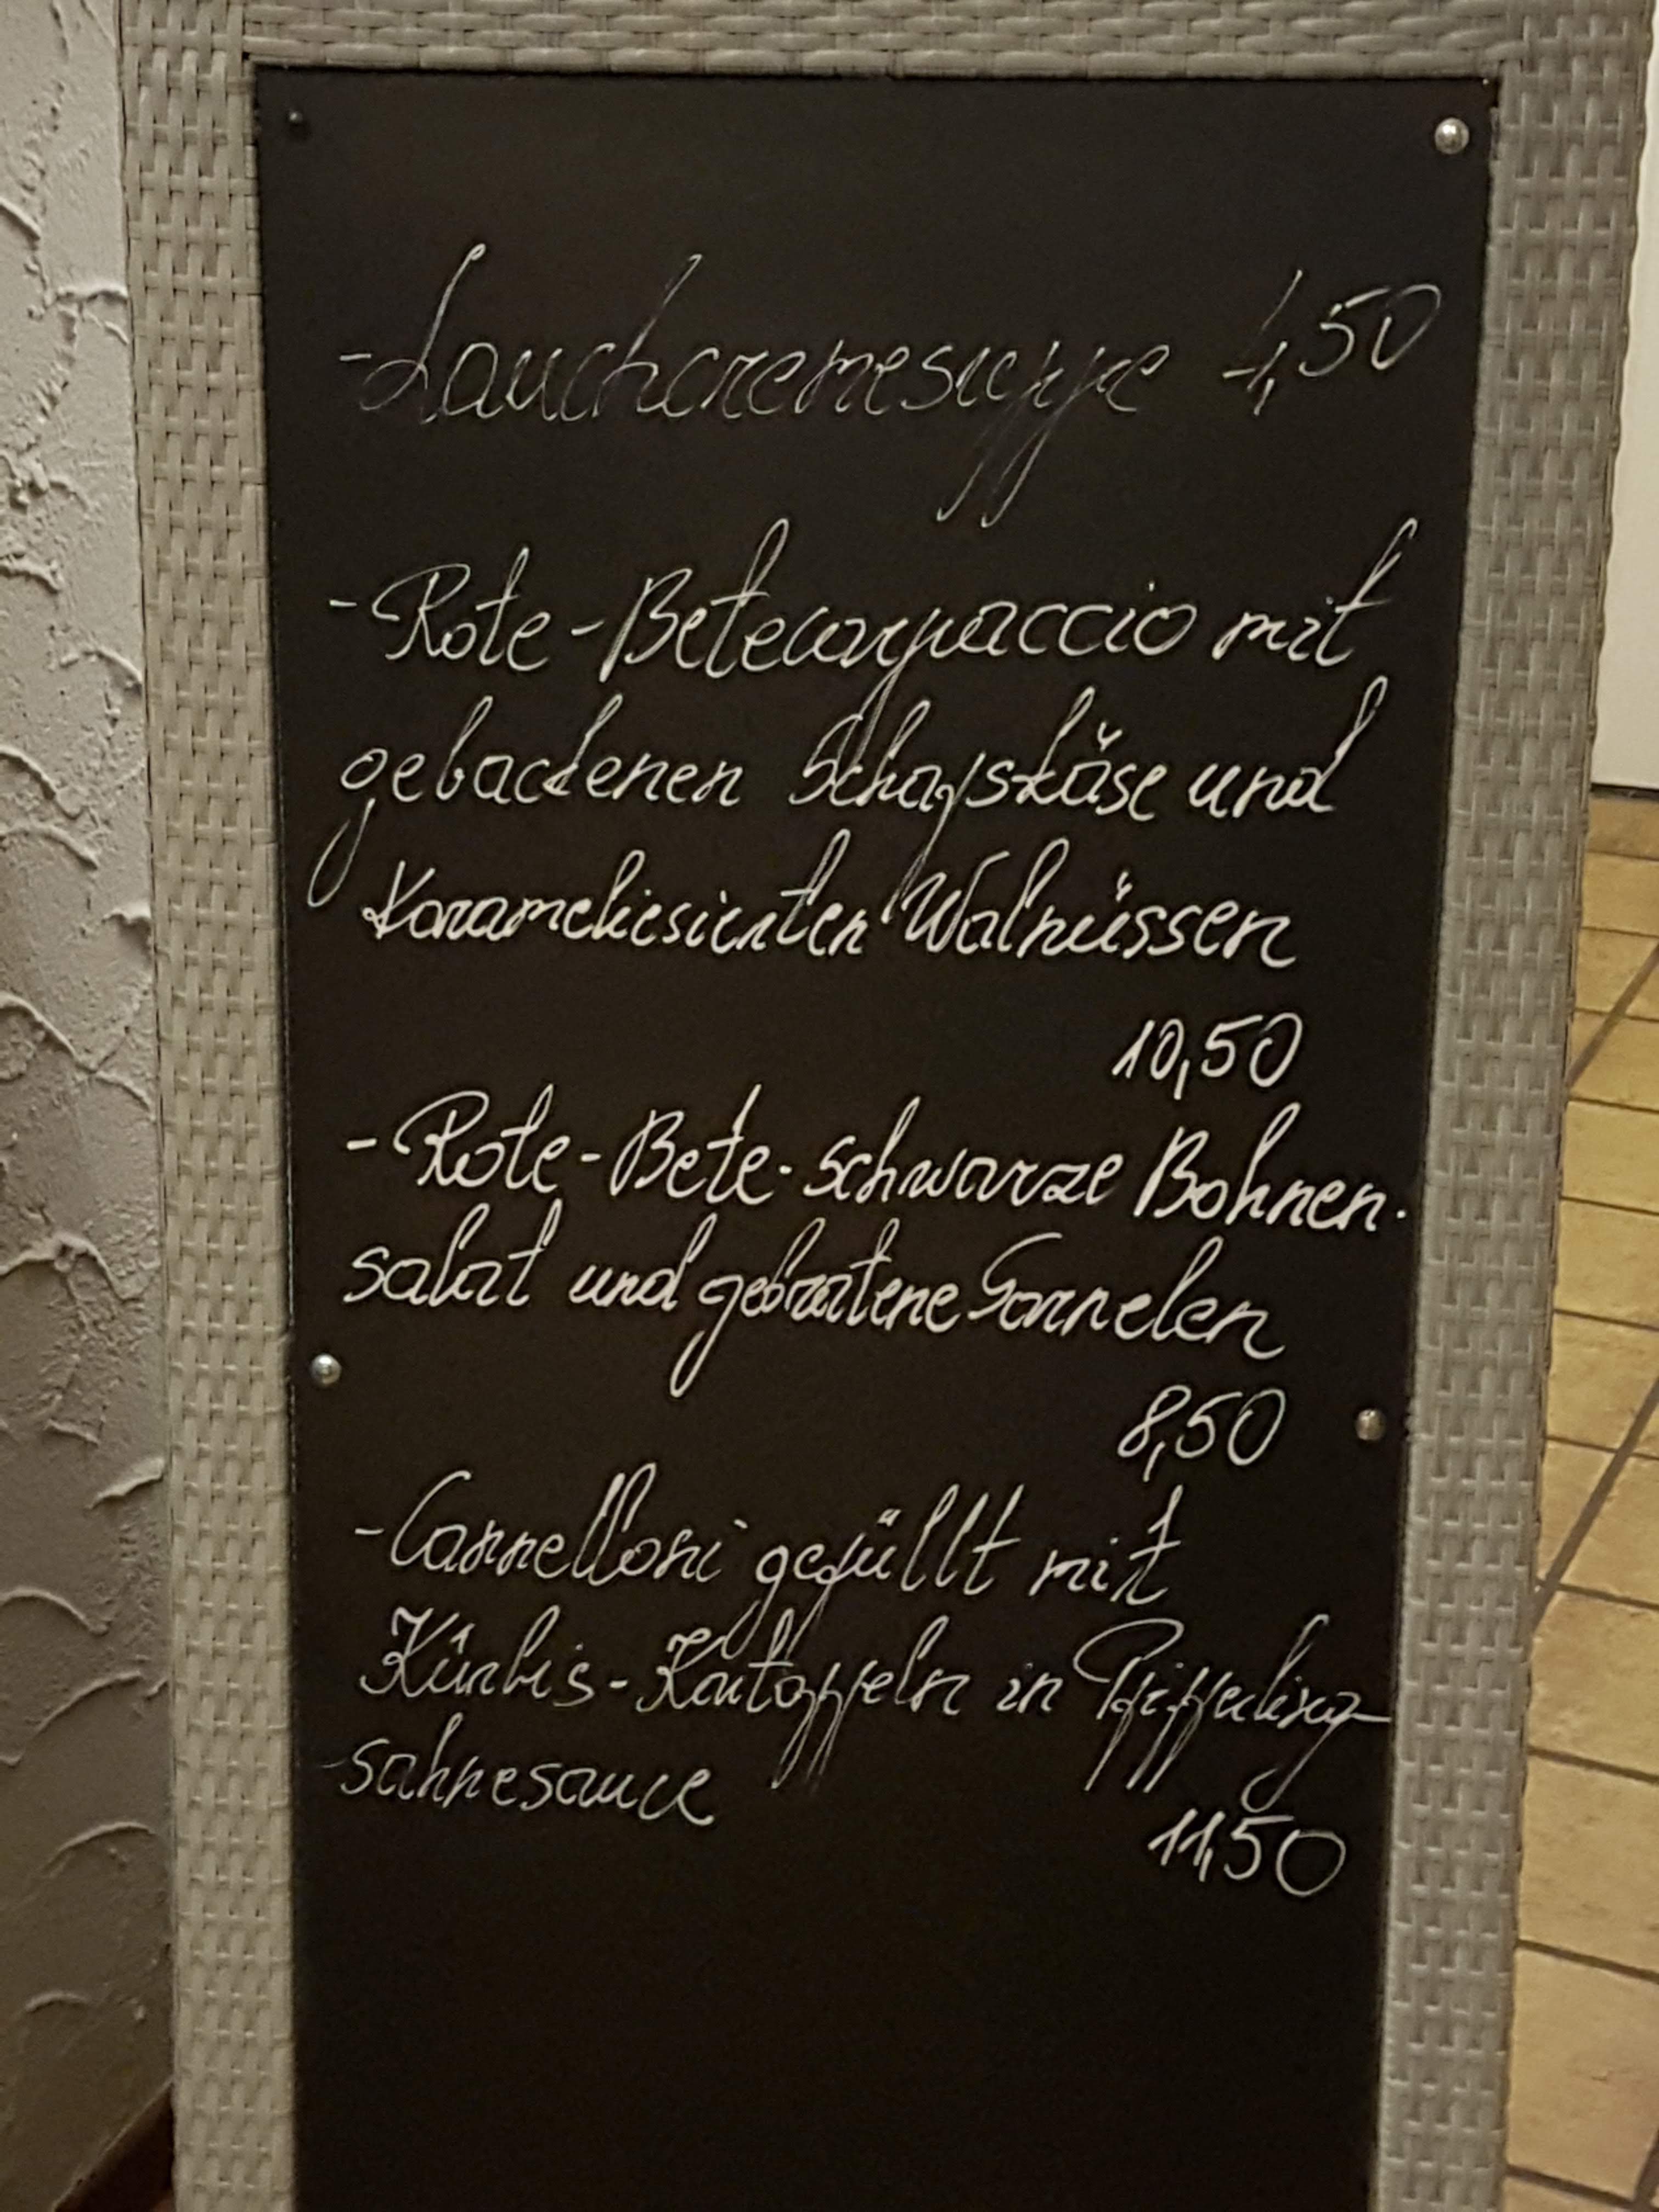 - Lauchcremesuppe 4,50
- Rote-Betecarpaccio mit
gebackenen Schafskäse und
Karameliesierten Walnüssen
10,50
- Rote-Bete-schwarze Bohnen-
salat und gebratene Garnelen
8,50
- Cannelloni gefüllt mit
Kürbis-Kartoffeln in Pfifferling-
sahnesauce
11,50